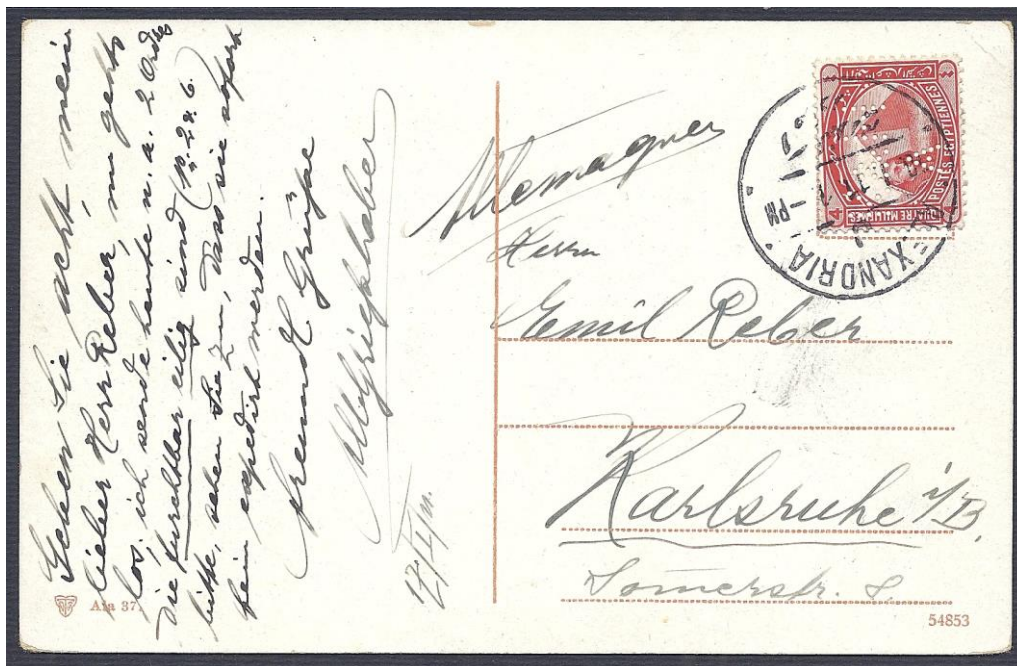 Geben Sie acht, mein
lieber Herr Reber, nun gehts
los, ich sende heute n. a. 2 Ordres
die furchtbar eilig sind (No 2 & 6.
bitte, sehen Sie zu, dass sie sofort
fein expedirt werden.
freundl Grüsse
17/II/11.
Allemagne
Herrn
Emil Reber
Karlsruhe i/B,
Somerstr.
ALEXANDRIA
PM
POSTES EGYPTIENNES
QUATRE MILLIEMES
4
54853